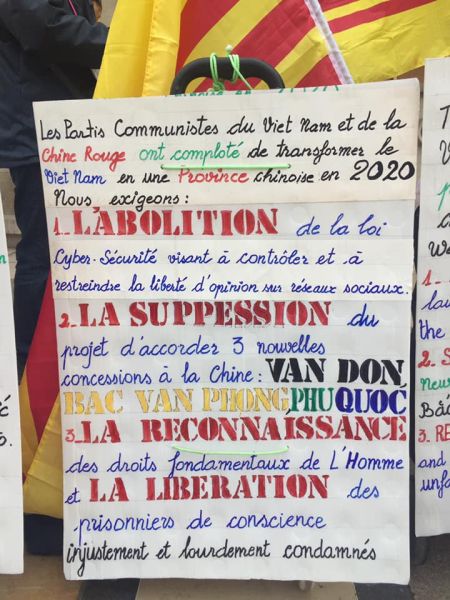 Les Partis Communistes du Viet Nam et de la
Chine Rouge ont comploté de transformer le
Viet Nam en une Province chinoise en 2020
Nous exigeons :
1. L'ABOLITION de la loi
Cyber-Sécurité visant à contrôler et à
restreindre la liberté d'opinion sur réseaux sociaux.
2. LA SUPPESSION du
projet d'accorder 3 nouvelles
concessions à la Chine : VAN DON
BAC VAN PHONG, PHU QUOC
3. LA RECONNAISSANCE
des droits fondamentaux de L'Homme
et LA LIBERATION des
prisonniers de conscience
injustement et lourdement condamnés
the
and